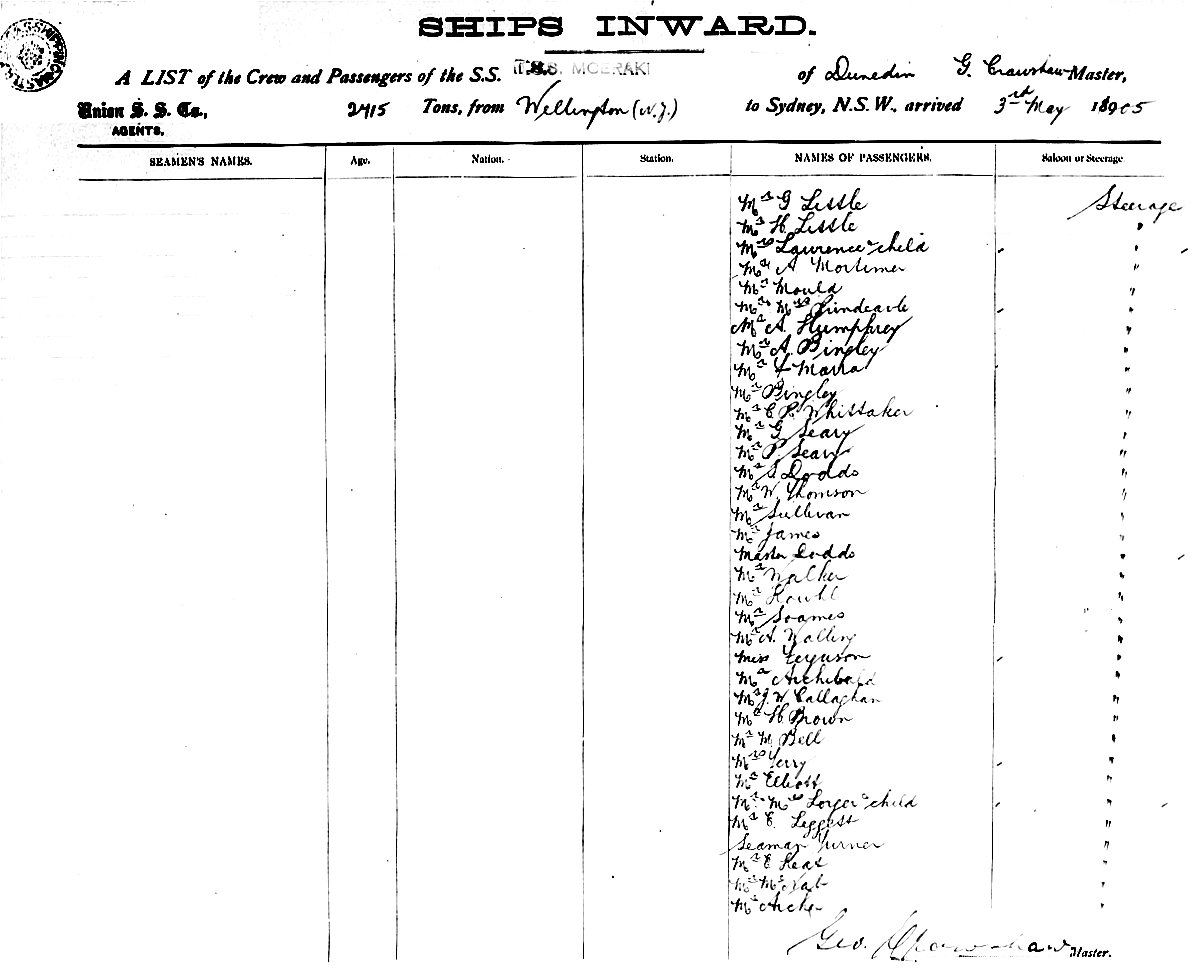 SHIPS INWARD.
A LIST of the Crew and Passengers of the S.S. T.S.S. MOERAKI of Dunedin G. Crawshaw Master,
Union S. S. Co., 2715 Tons, from Wellington (N.Z.) to Sydney, N.S.W., arrived 3rd May 18905
AGENTS.
SEAMEN'S NAMES. Age. Nation. Station. NAMES OF PASSENGERS. Saloon or Steerage
Mr G Little Steerage
Mr H. Little "
Mrs Lawrence & child "
Mr A Mortimer "
Mr Mould "
Mr & Mrs "
Mr A. Humphrey "
Mr A. Bingley "
Mr Marra "
Mr Bingley "
Mr C. R. Whittaker "
Mr G Seary "
Mr P. Seary "
Mr S Dodds "
Mr W. Thomson "
Mr Sullivan "
Mr James "
Master Dodds "
Mr Walker "
Mr "
Mr Soames "
Mr A. "
Miss Ferguson "
Mr Archibald "
Mr J. W. Callaghan "
Mr H Brown "
Mr M. Bell "
Mrs Terry "
Mr Elliott "
Mr & Mrs & child "
Mr E. Leggett "
Seaman Turner "
Mr E "
Mr McNab "
Mr Archer "
Geo. Crawshaw Master.